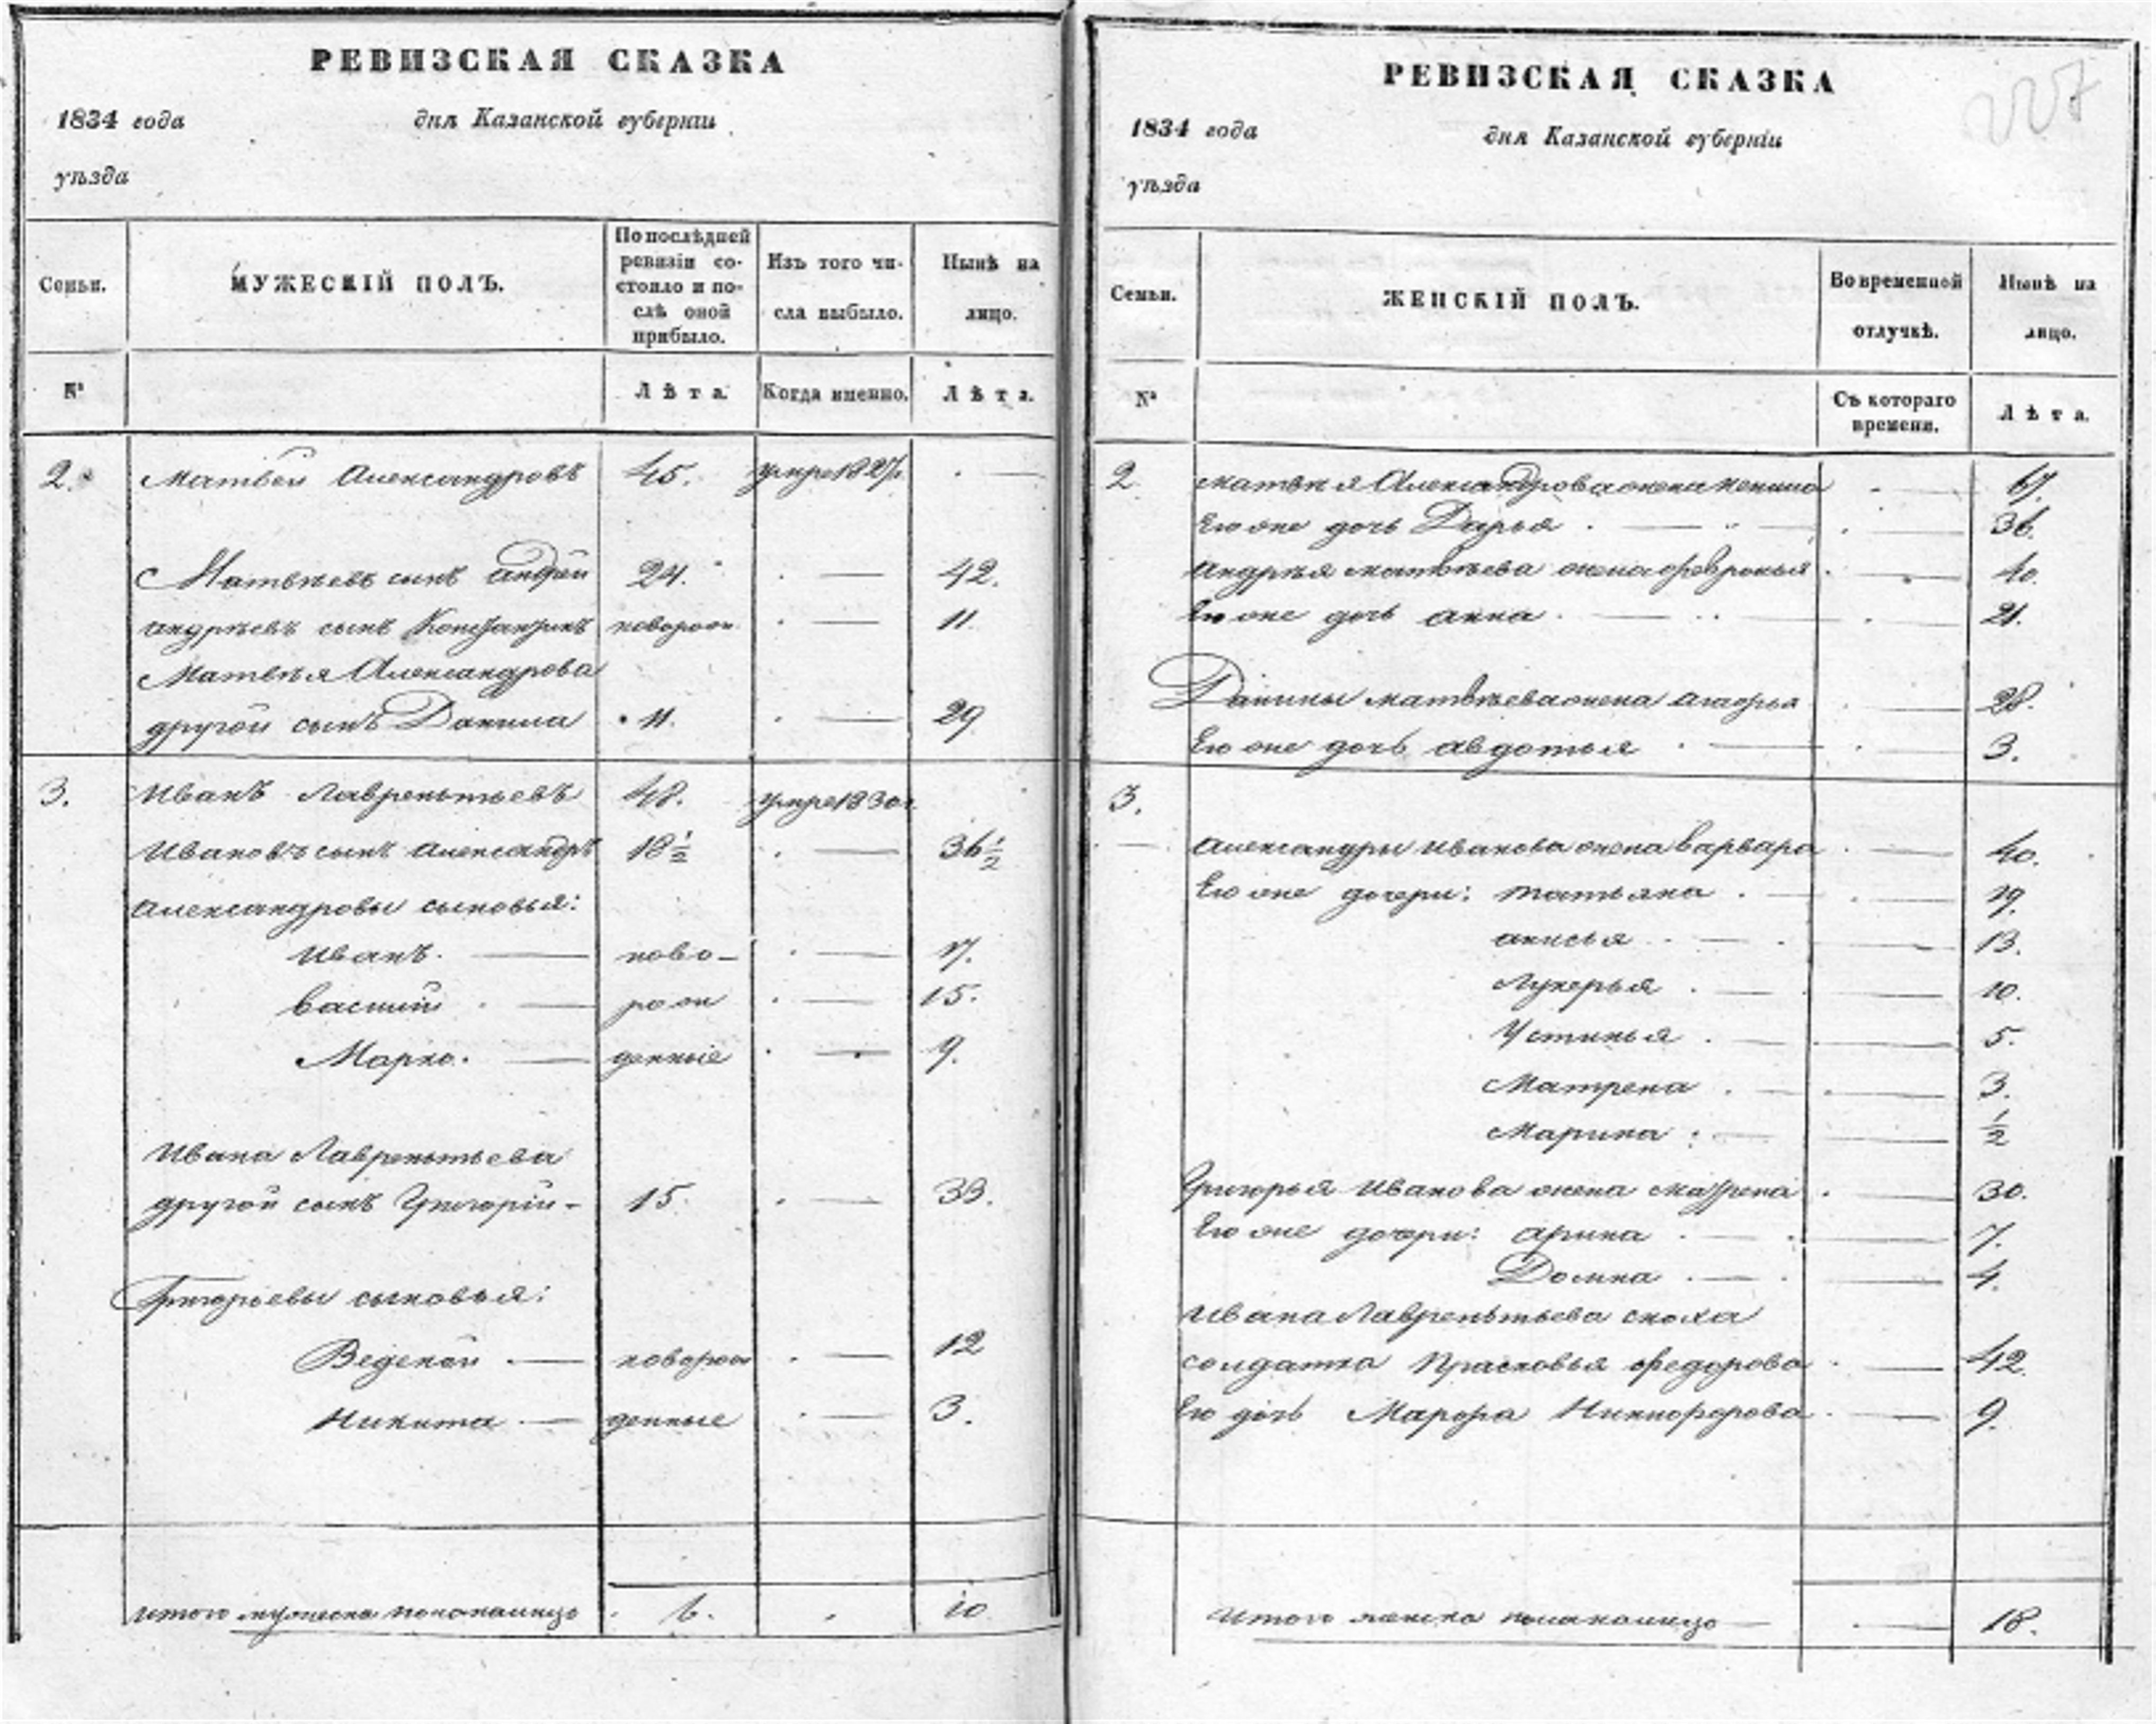 РЕВИЗСКАЯ СКАЗКА
1834 года дня Казанской губерніи
уѣзда
Семьи. МУЖЕСКІЙ ПОЛЪ. По послѣдней ревизіи состояло и послѣ оной прибыло. Изъ того числа выбыло. Нынѣ на лицо.
№ Лѣта. Когда именно. Лѣта.
2. Матвей Александровъ 45. умре 1827.
Матвѣевъ сынъ андрей 24. — 42.
андрѣевъ сынъ Константинъноворож. — 11.
Матвѣя Александрова
другой сынъ Данила 11. — 29
3. Иванъ Лаврентьевъ 48. умре 1830 г.
Ивановъ сынъ александръ 18 1/2 — 36 1/2
александровы сыновья:
Иванъ. — ново- — 17.
василій — рож — 15.
Марко. — денные — 9.
Ивана Лаврентьева
другой сынъ Григорій- 15. — 33.
Григорьевы сыновья:
Веденей — новорож — 12
Никита — денные — 3.
итого мужеска пола на лицо 6. 10
РЕВИЗСКАЯ СКАЗКА 227
1834 года дня Казанской губерніи
уѣзда
Семьи. ЖЕНСКІЙ ПОЛЪ. Во временной отлучкѣ. Нынѣ на лицо.
№ Съ котораго времени. Лѣта.
2. матвѣя Александрова жена — 67.
Его же дочь Дарья — 36.
андрѣя матвѣева жена февронья — 40.
Его же дочь анна — 21.
Данилы матвѣева жена агафья — 28.
Его же дочь авдотья — 3.
3.
александры иванова жена варвара — 40.
Его же дочери: татьяна — 19.
анисья — 13.
Лукерья — 10.
Устинья — 5.
Матрена — 3.
Марина — 1/2
Григорья Иванова жена матрена — 30.
Его же дочери: арина — 7.
Домна — 4.
Ивана Лаврентьева сноха
солдатка Прасковья федорова — 42.
Ею дочь Марфа Никифорова — 9.
итого женска пола на лицо — 18.